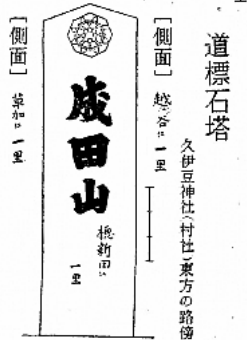 道標石塔
久伊豆神社(村社)東方の路傍
[側面]
越ヶ谷江 一里
成田山
槐新田江
一里
[側面]
草加江 一里